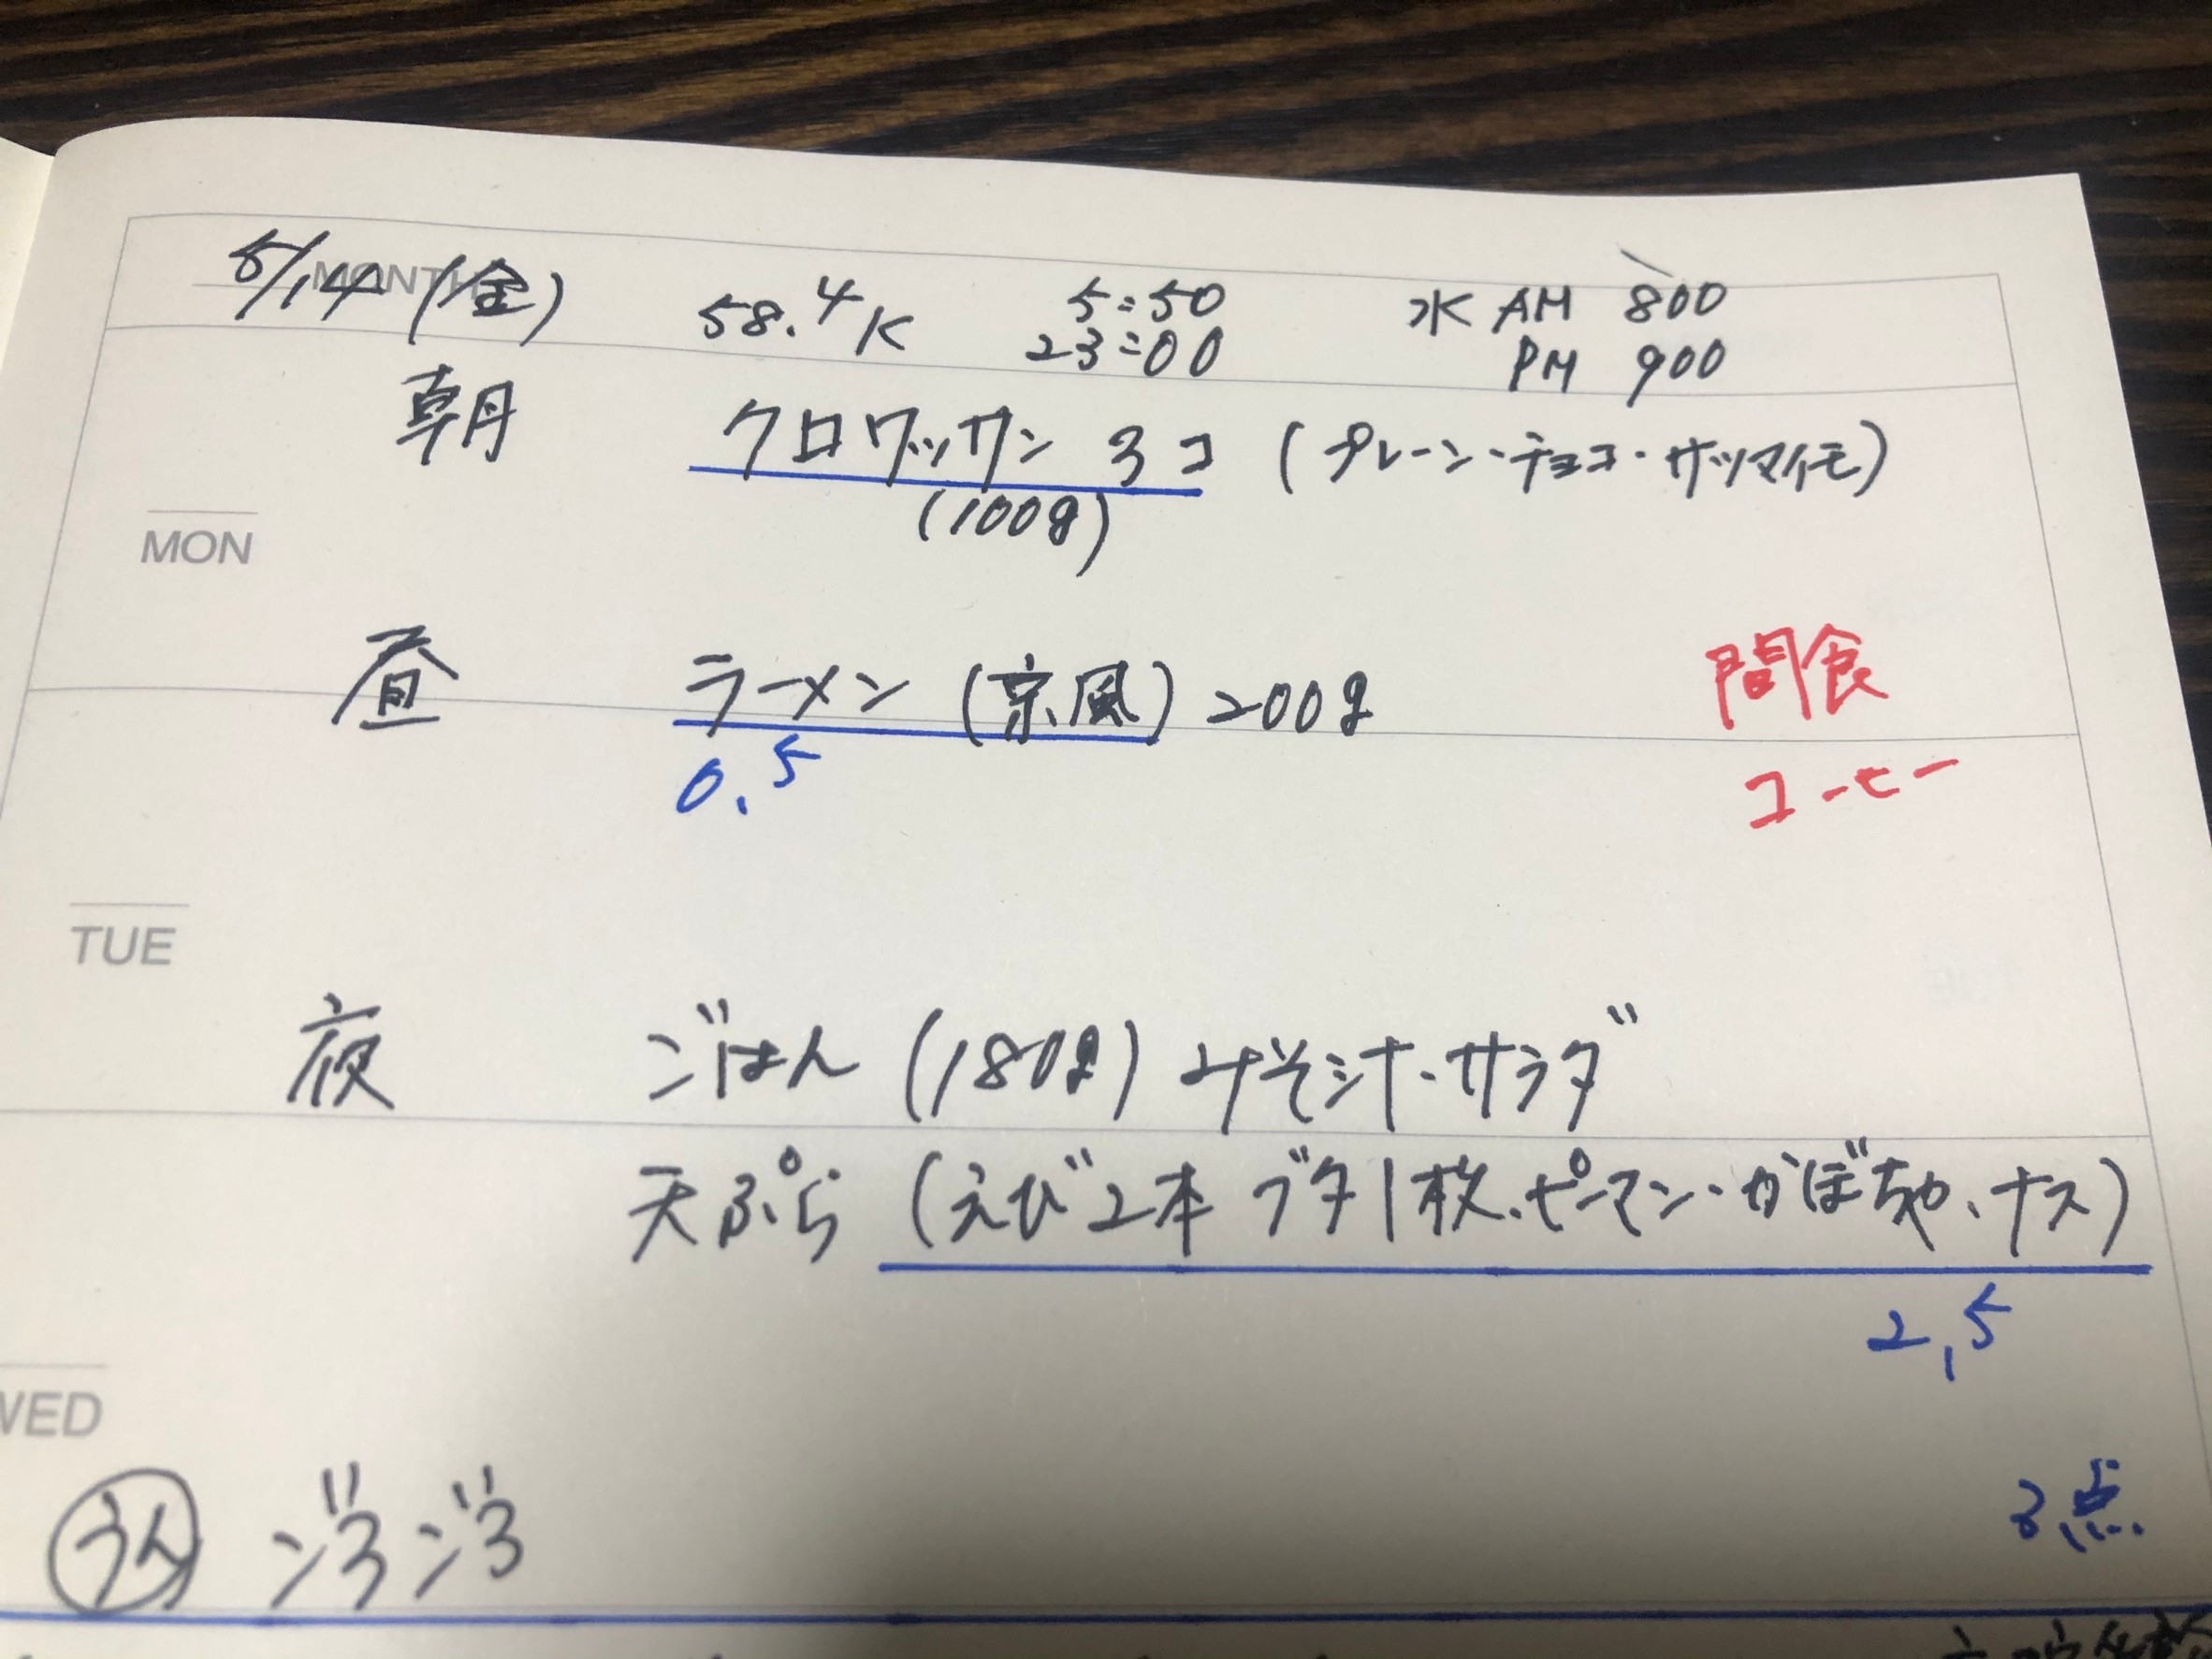 MONTH
5/14 (金) 58.4K 5:50 水 AM 800
23:00 PM 900
朝 クロワッサン 3コ (プレーン・チョコ・サツマイモ)
(100g)
MON
昼 ラーメン (京風) 200g 間食
0.5 コーヒー
TUE
夜 ごはん (180g) みそ汁・サラダ
天ぷら (えび2本 ブタ1枚、ピーマン・かぼちゃ、ナス)
2,5
WED
うん ゴロゴロ 3点